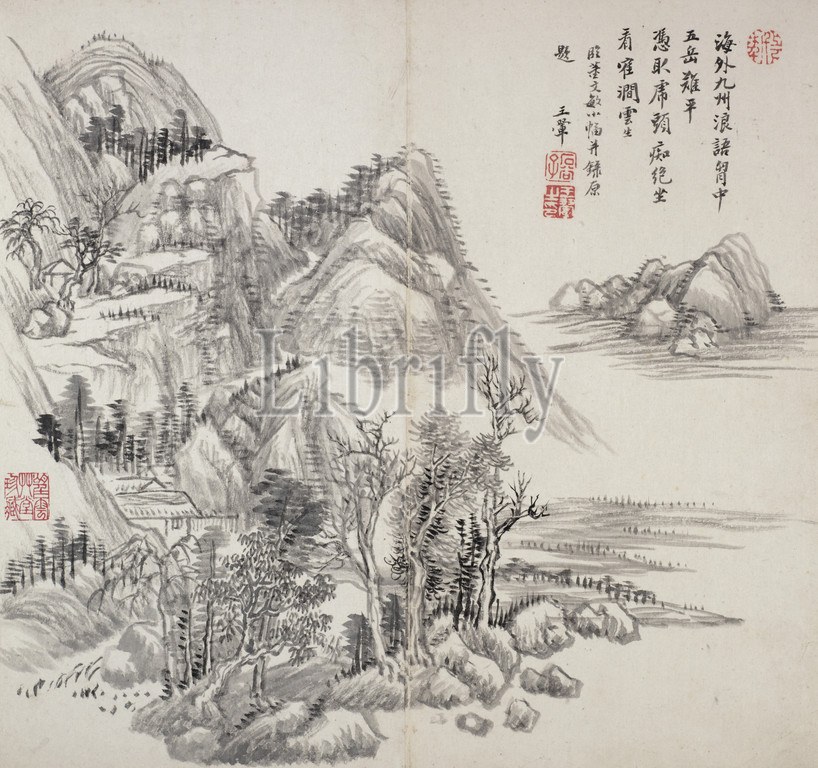 海外九州浪語胷中
五岳難平
憑取虎頭痴絕坐
看寉澗雲生
臨董文敏小幅并錄原
題 王翬
石谷子
王翬之印
Librifly